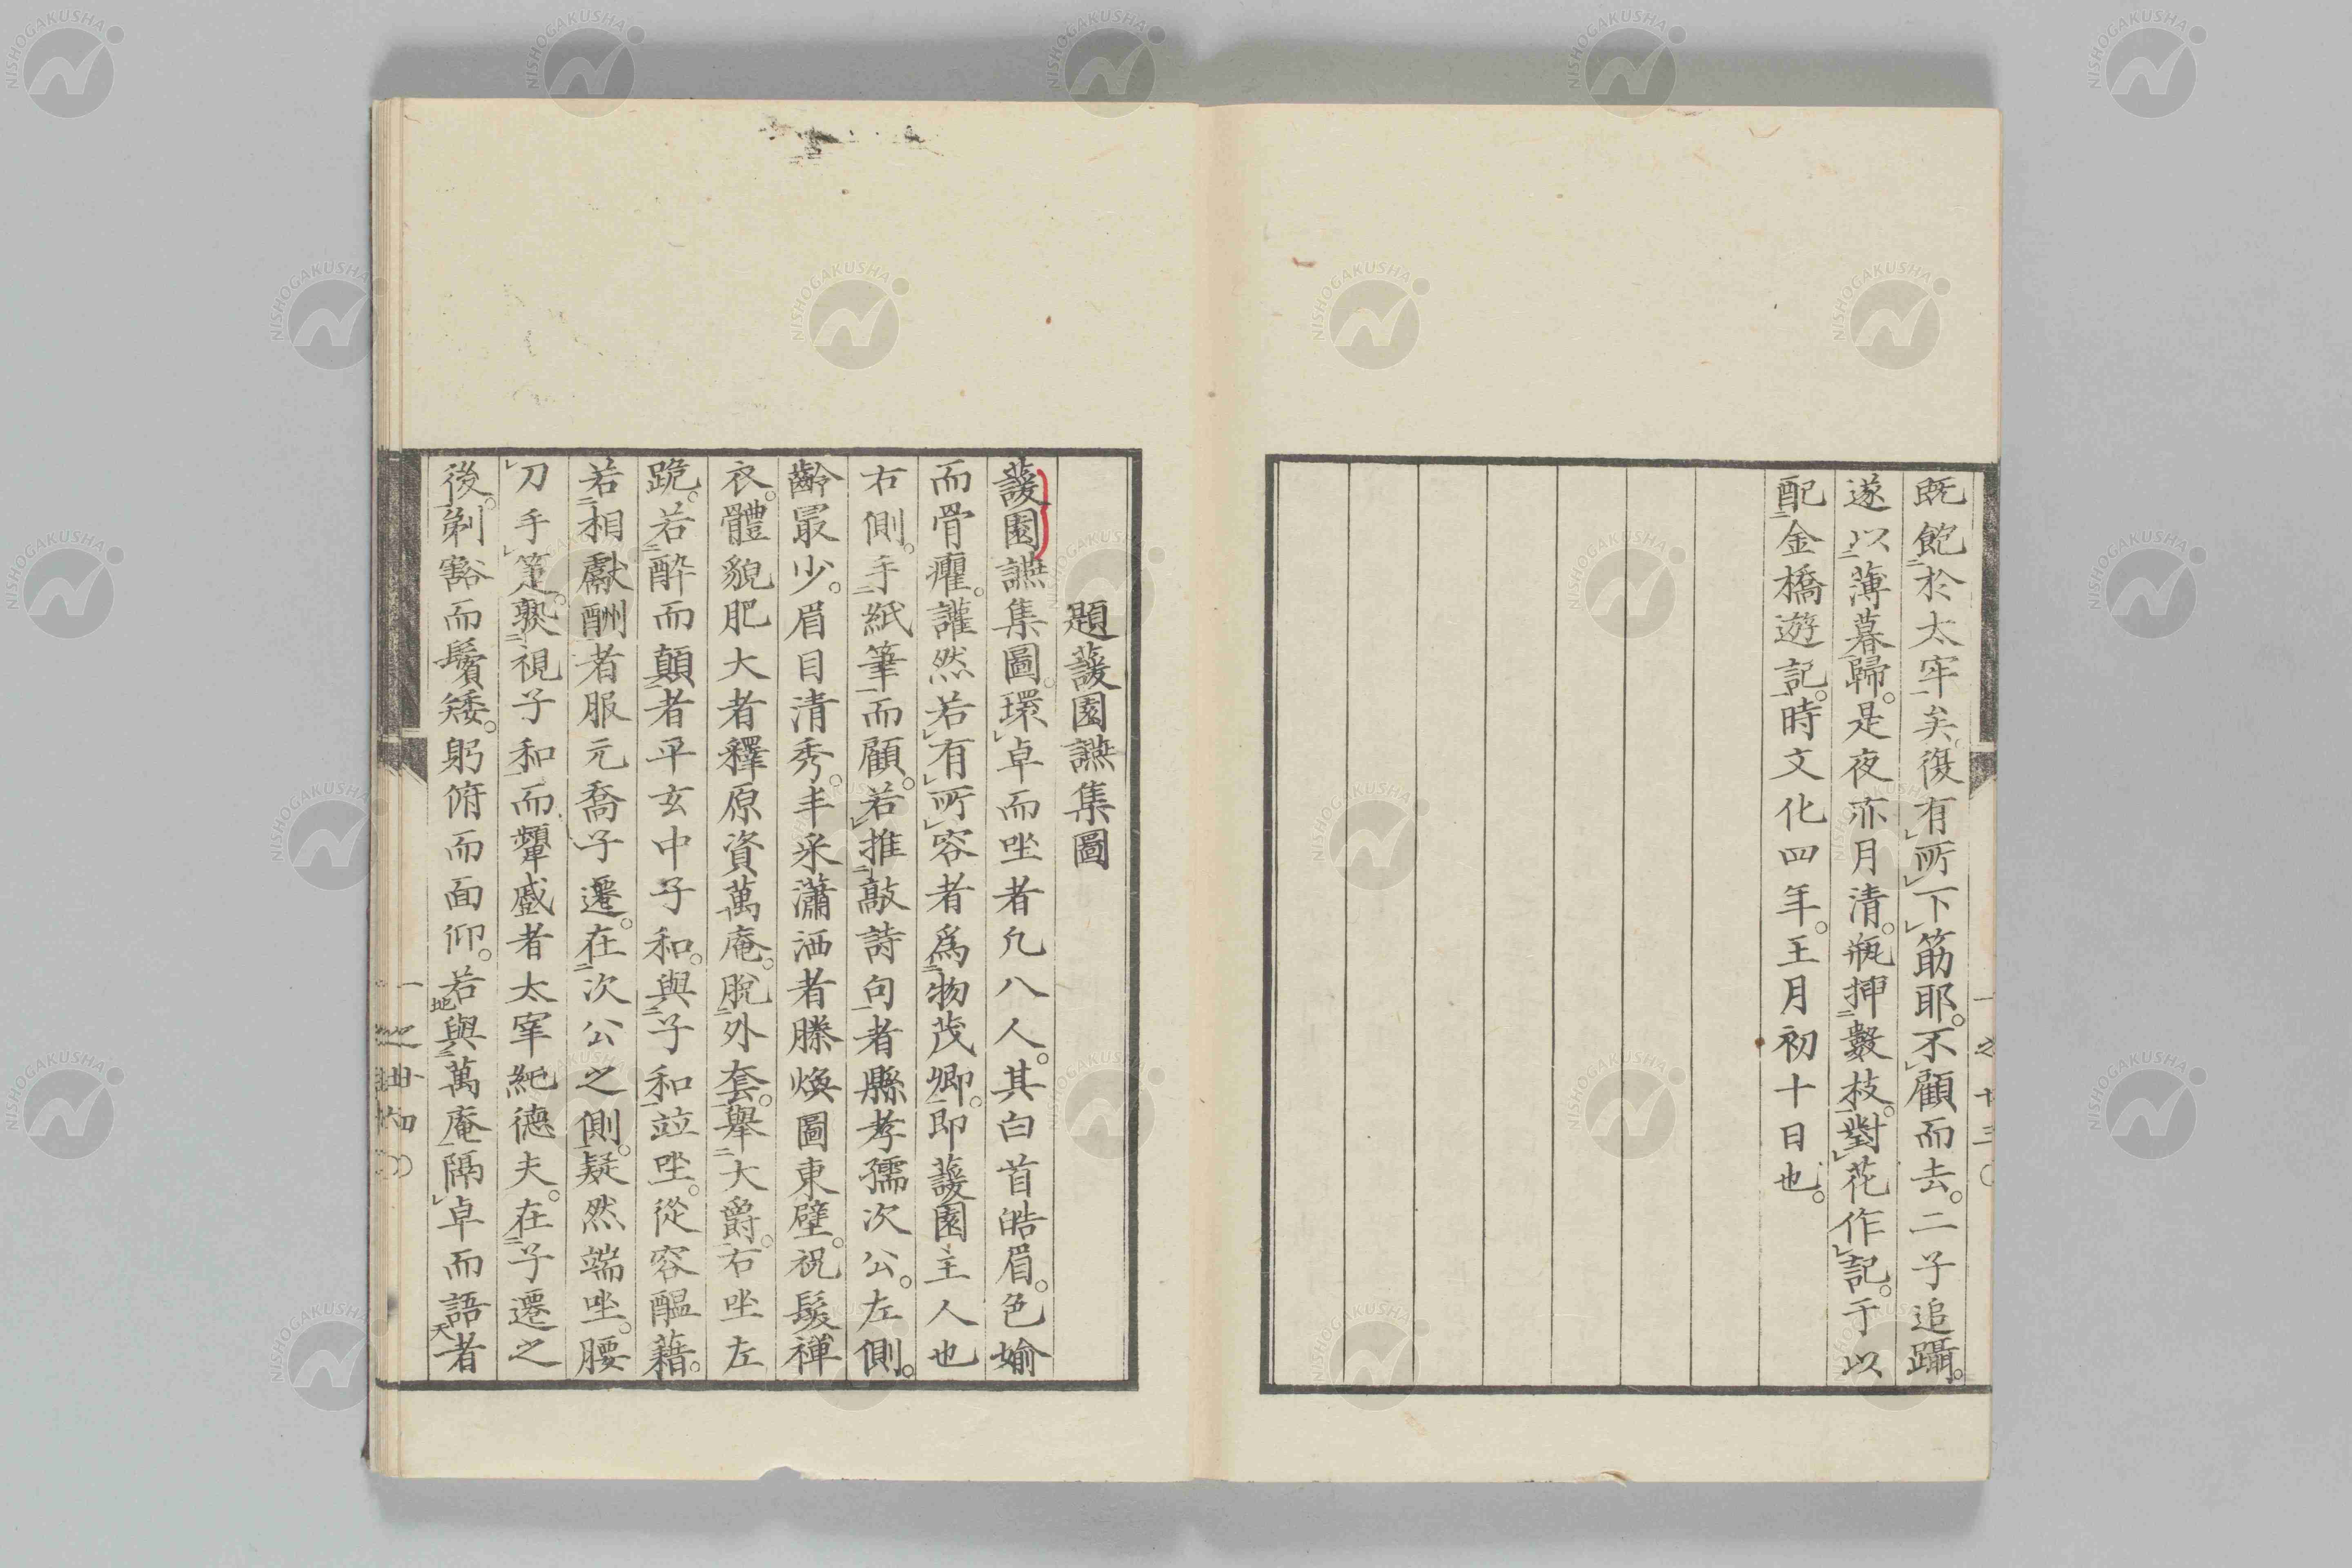 既飽於太牢矣。復有所下筋耶。不顧而去。二子追躡。
遂以薄暮歸。是夜亦月清。瓶挿數枝。對花作記。于以
配金橋遊記。時文化四年。王月初十日也。
題蘐園讌集圖
蘐園讌集圖。環卓而坐者凡八人。其白首皓眉。色婾
而骨癯。讙然若有所容者爲物茂卿。即蘐園主人也
右側。手紙筆而顧。若推敲詩句者縣孝孺次公。左側。
齡最少。眉目清秀。丰采瀟洒者滕煥圖東壁。祝髮襌
衣。體貌肥大者釋原資萬庵。脫外套。舉大爵。右坐左
跪。若酔而顛者平玄中子和。與子和竝坐。從容醞藉。
若相獻酬者服元喬子遷。在次公之側。疑然端坐。腰
刀手箑。熟視子和而顰蹙者太宰純德夫。在子遷之
後。剃豁而鬢矮。躬俯而面仰。若與萬庵隔卓而語者
地
天
一之十三〇
NISHOGAKUSHA